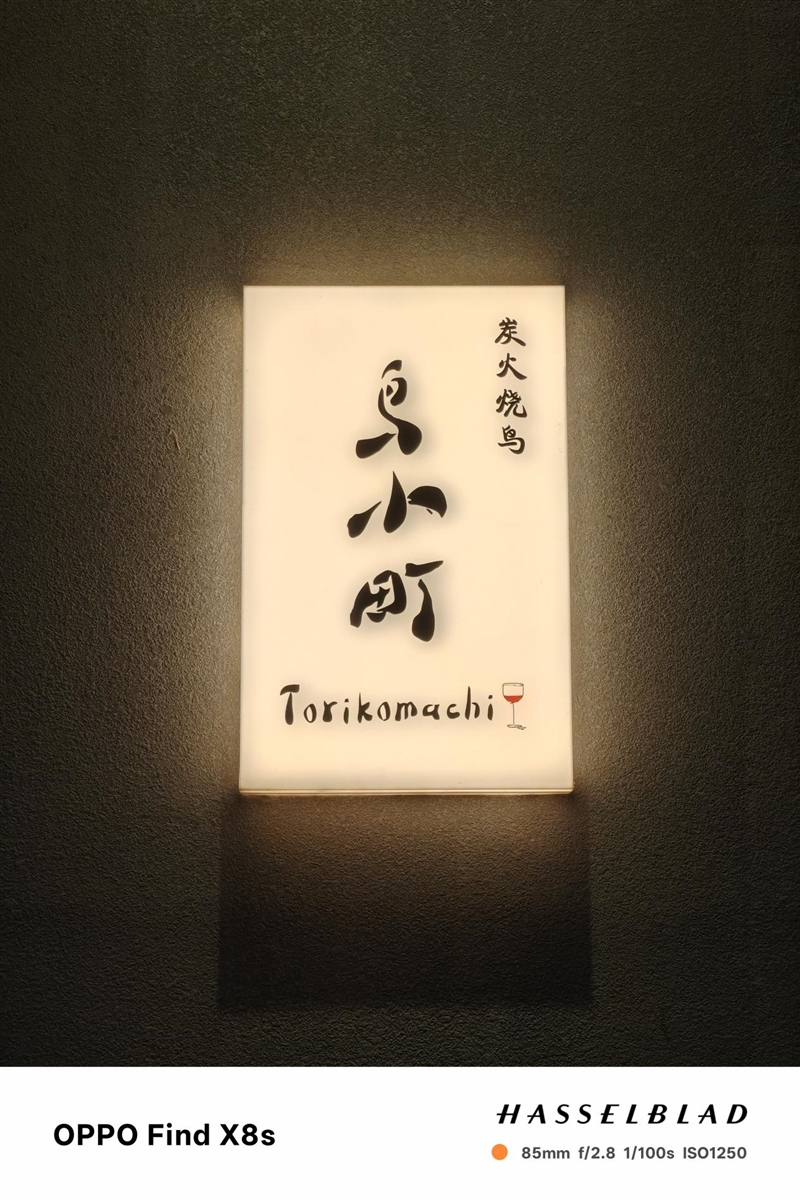 炭火烧鸟
鸟小町
Torikomachi
OPPO Find X8s
HASSELBLAD
85mm f/2.8 1/100s ISO1250